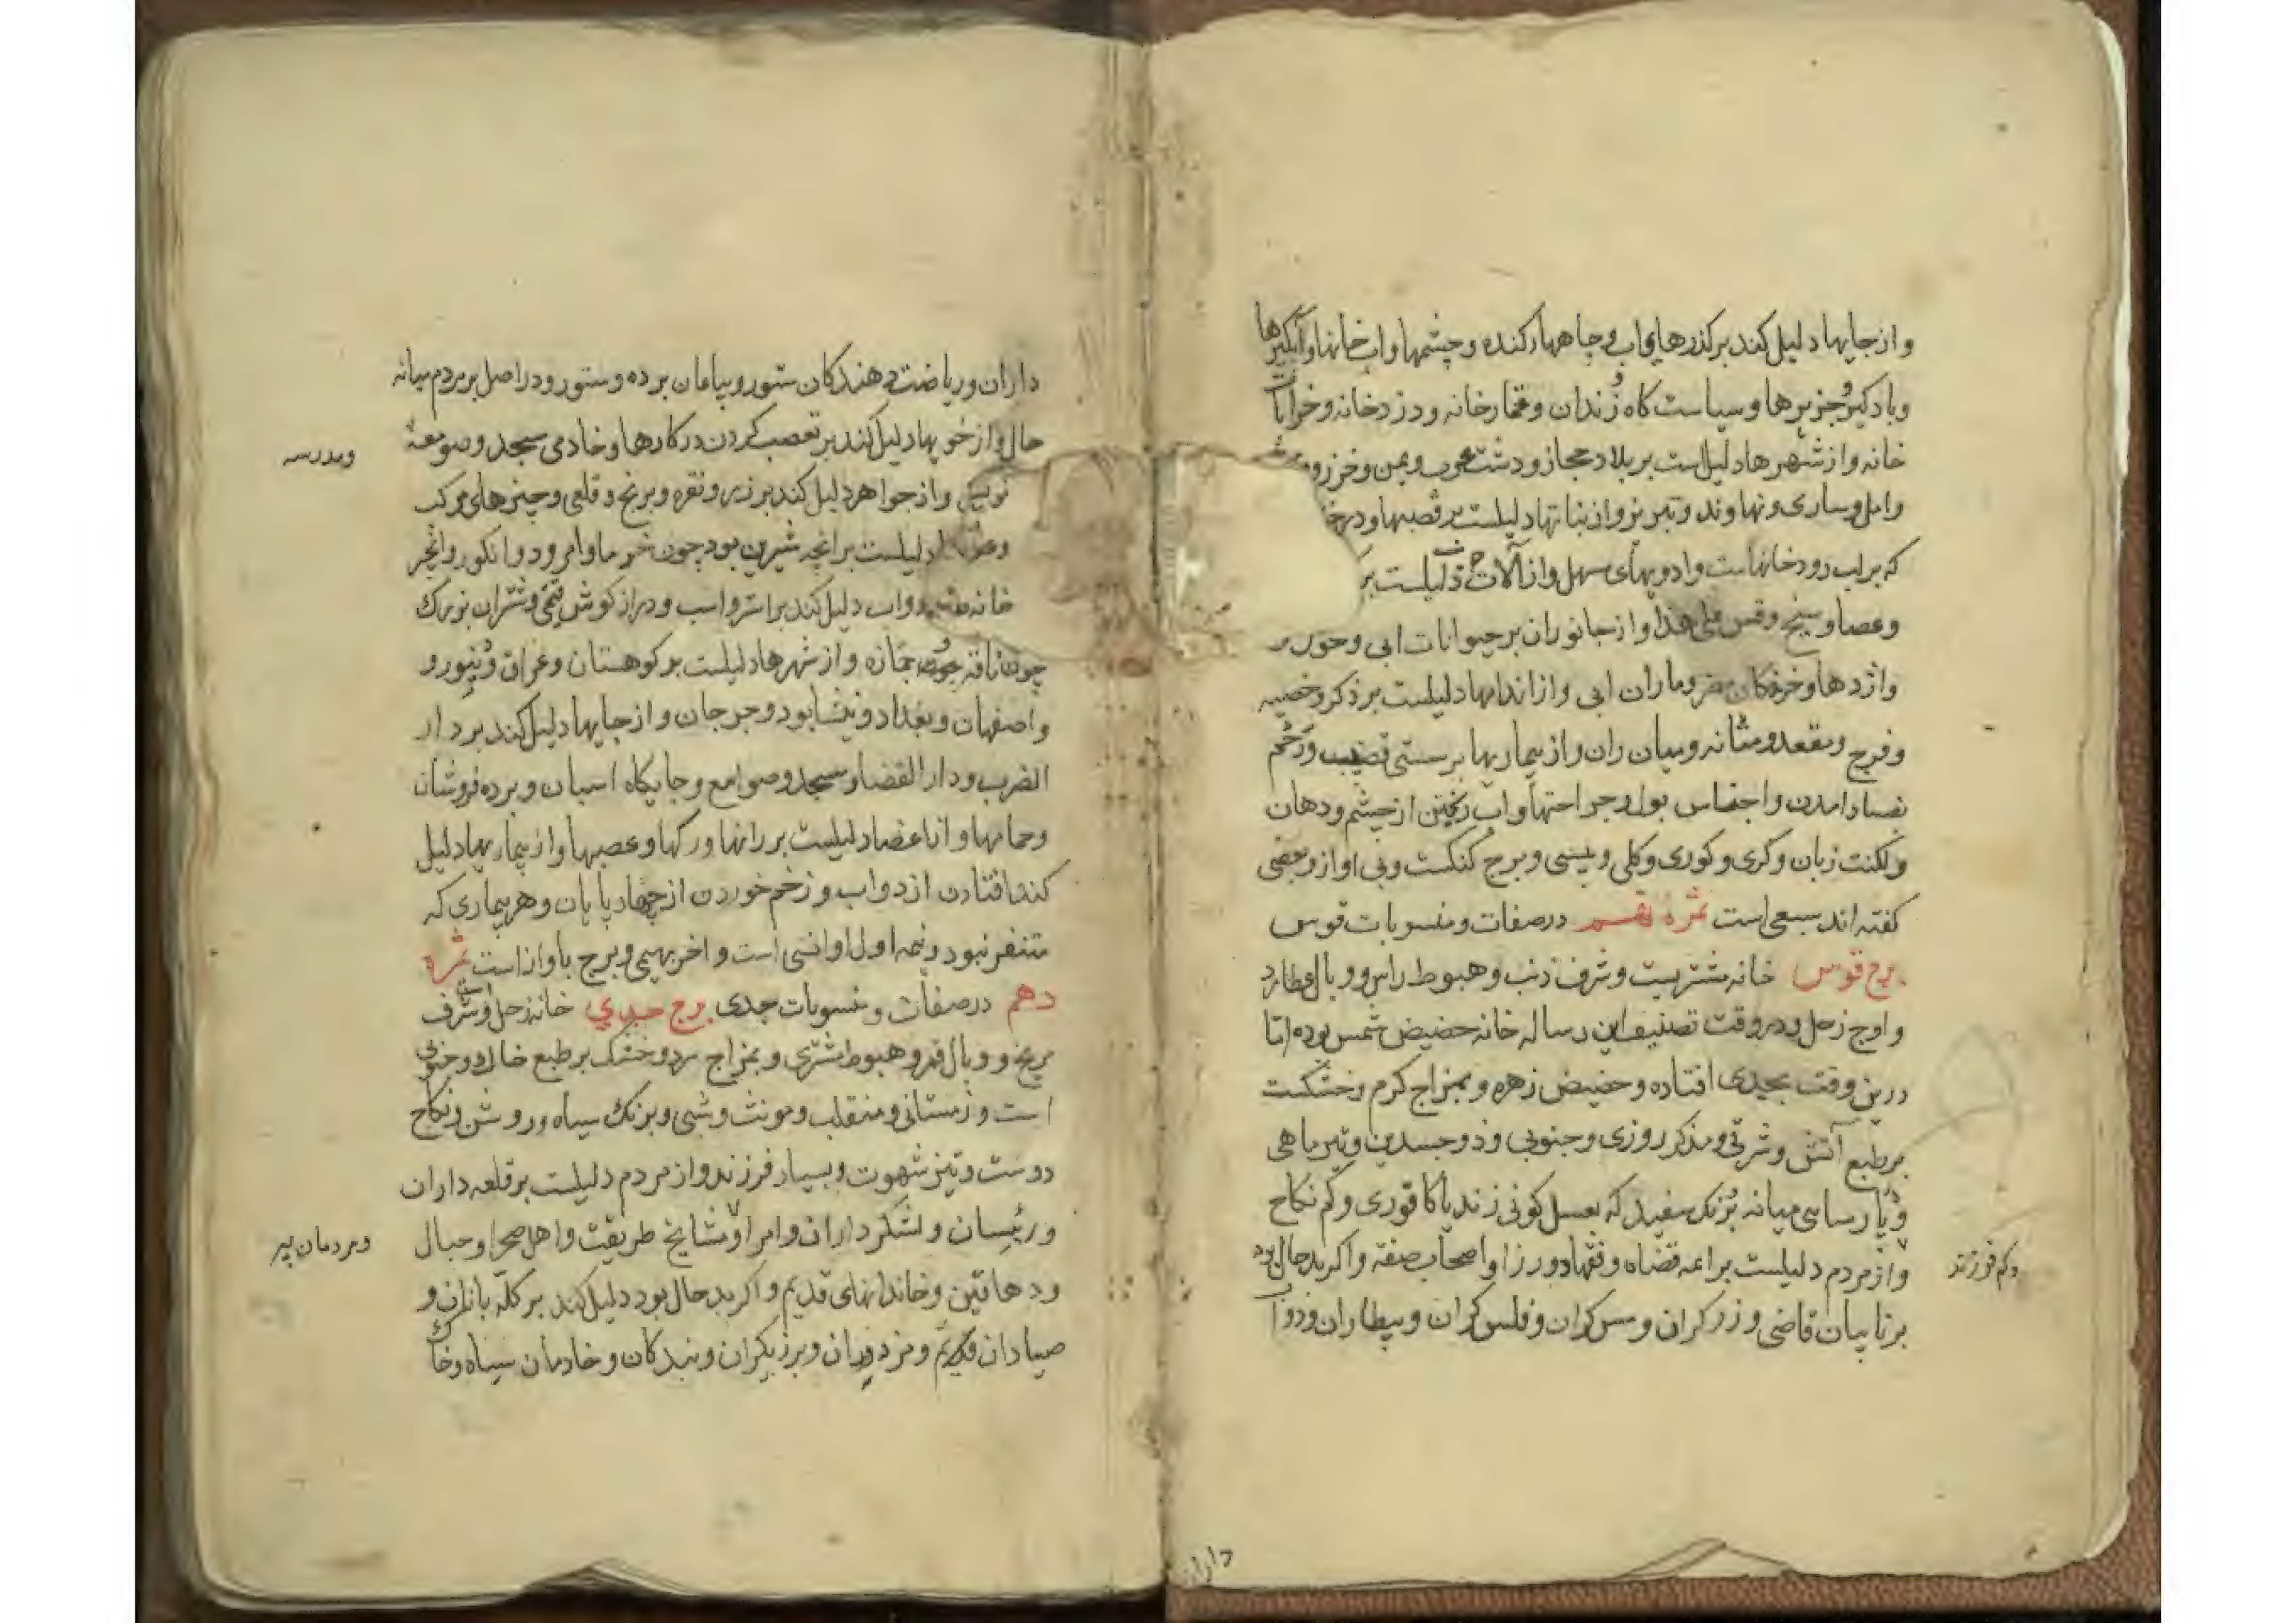 و از جایها دلیل کند بر کذرهای اب و چاههاء کنده و چشمها و اب خانها و آبکیرها
و بادکیر و جزیرها و سیاست کاه و زندان و قمارخانه و دزدخانه و خرابات
خانه و از شهرها دلیل است بر بلاد حجاز و دشت عرب و یمن و خزر و
وامل و ساری و نهاوند و تبریز و از بناتها دلیلست بر قصبها و درخـ
که بر لب رودخانهاست و ادویهای سهل و از آلات دلیلست بر
و عصا و سیخ و قس علی هذا و از جانوران بر حیوانات ابی و حون
و اژدها و خرفکان و ماران ابی و از اندامها دلیلست بر ذکر و خصیه
و فرج و مقعد و مثانه و میان ران و از بیماریها بر سستی قضیب و رحم
بفساد امدن و احتباس بول و جراحتها و اب ریختن از چشم و دهان
و لکنت زبان و کری و کوری و کلی و پیسی و برج کنکست و بی اواز و بعضی
کفته اند سبعی است ثمرهٔ نهم در صفات و منسوبات قوس
برج قوس خانه مشتریست و شرف ذنب و هبوط راس و وبال عطارد
و اوج زحل و در وقت تصنیف این رساله خانه حضیض شمس بوده اما
درین وقت بجدی افتاده و حضیض زهره و بمزاج کرم و خشکست
بر طبع آتش و شرقی و مذکر روزی و جنوبی و ذو جسدین و تیرماهی
و پارسایی میانه برنک سفید که بعسل کونی زند یا کافوری و کم نکاح
و کم فرزند
و از مردم دلیلست بر ائمه قضاه و فقها و وزرا و اصحاب صفه و اکر بدحال بود
بر نایبان قاضی و زرکران و مس کران و فلس کران و بیطاران و دواب
داران
داران و ریاضت دهندکان ستور و بیاعان برده و ستور و در اصل بر مردم میانه
حال و از خویها دلیل کند بر تعصب کردن در کارها و خادمی مسجد و صومعهٔ
و مدرسه
و از جواهر دلیل کند بر زر و نقره و برنج و قلعی و چیزهای مرکب
دلیلست بر انچه شیرین بود چون خرما و امرود و انکور و انجیر
خانه دواب دلیل کند بر استر و اسب و دراز کوش قیمتی و شتران بزرک
چون ناقه جمازه و از شهرها دلیلست بر کوهستان و عراق و
و اصفهان و بغداد و نیشابور و جرجان و از جایها دلیل کند بر دار
الضرب و دار القضا و مسجد و صوامع و جایکاه اسبان و برده فروشان
و حمامها و از اعضا دلیلست بر رانها و رکها و عصبها و از بیماریها دلیل
کند افتادن از دواب و زخم خوردن از چهارپایان و هر بیماری که
متنفر نبود و نیمه اول او انسی است و اخر بهیمی و برج با واز است ثمره
دهم در صفات و منسوبات جدی برج جدی خانه زحل است و شرف
مریخ و وبال قمر و هبوط مشتری و بمزاج سرد و خشک بر طبع خاک و جنوبی
است و زمستانی و منقلب و مونث و شبی و برنک سیاه و روشن و نکاح
دوست و تیز شهوت و بسیار فرزند و از مردم دلیلست بر قلعه داران
و رئیسان و لشکر داران و امرا و مشایخ طریقت و اهل صحرا و جبال
و مردمان پیر
و دهاقین و خاندانهای قدیم و اکر بدحال بود دلیل کند بر کله بانان و
صیادان و مزدوران و برزیکران و بندکان و خادمان سیاه و خاک